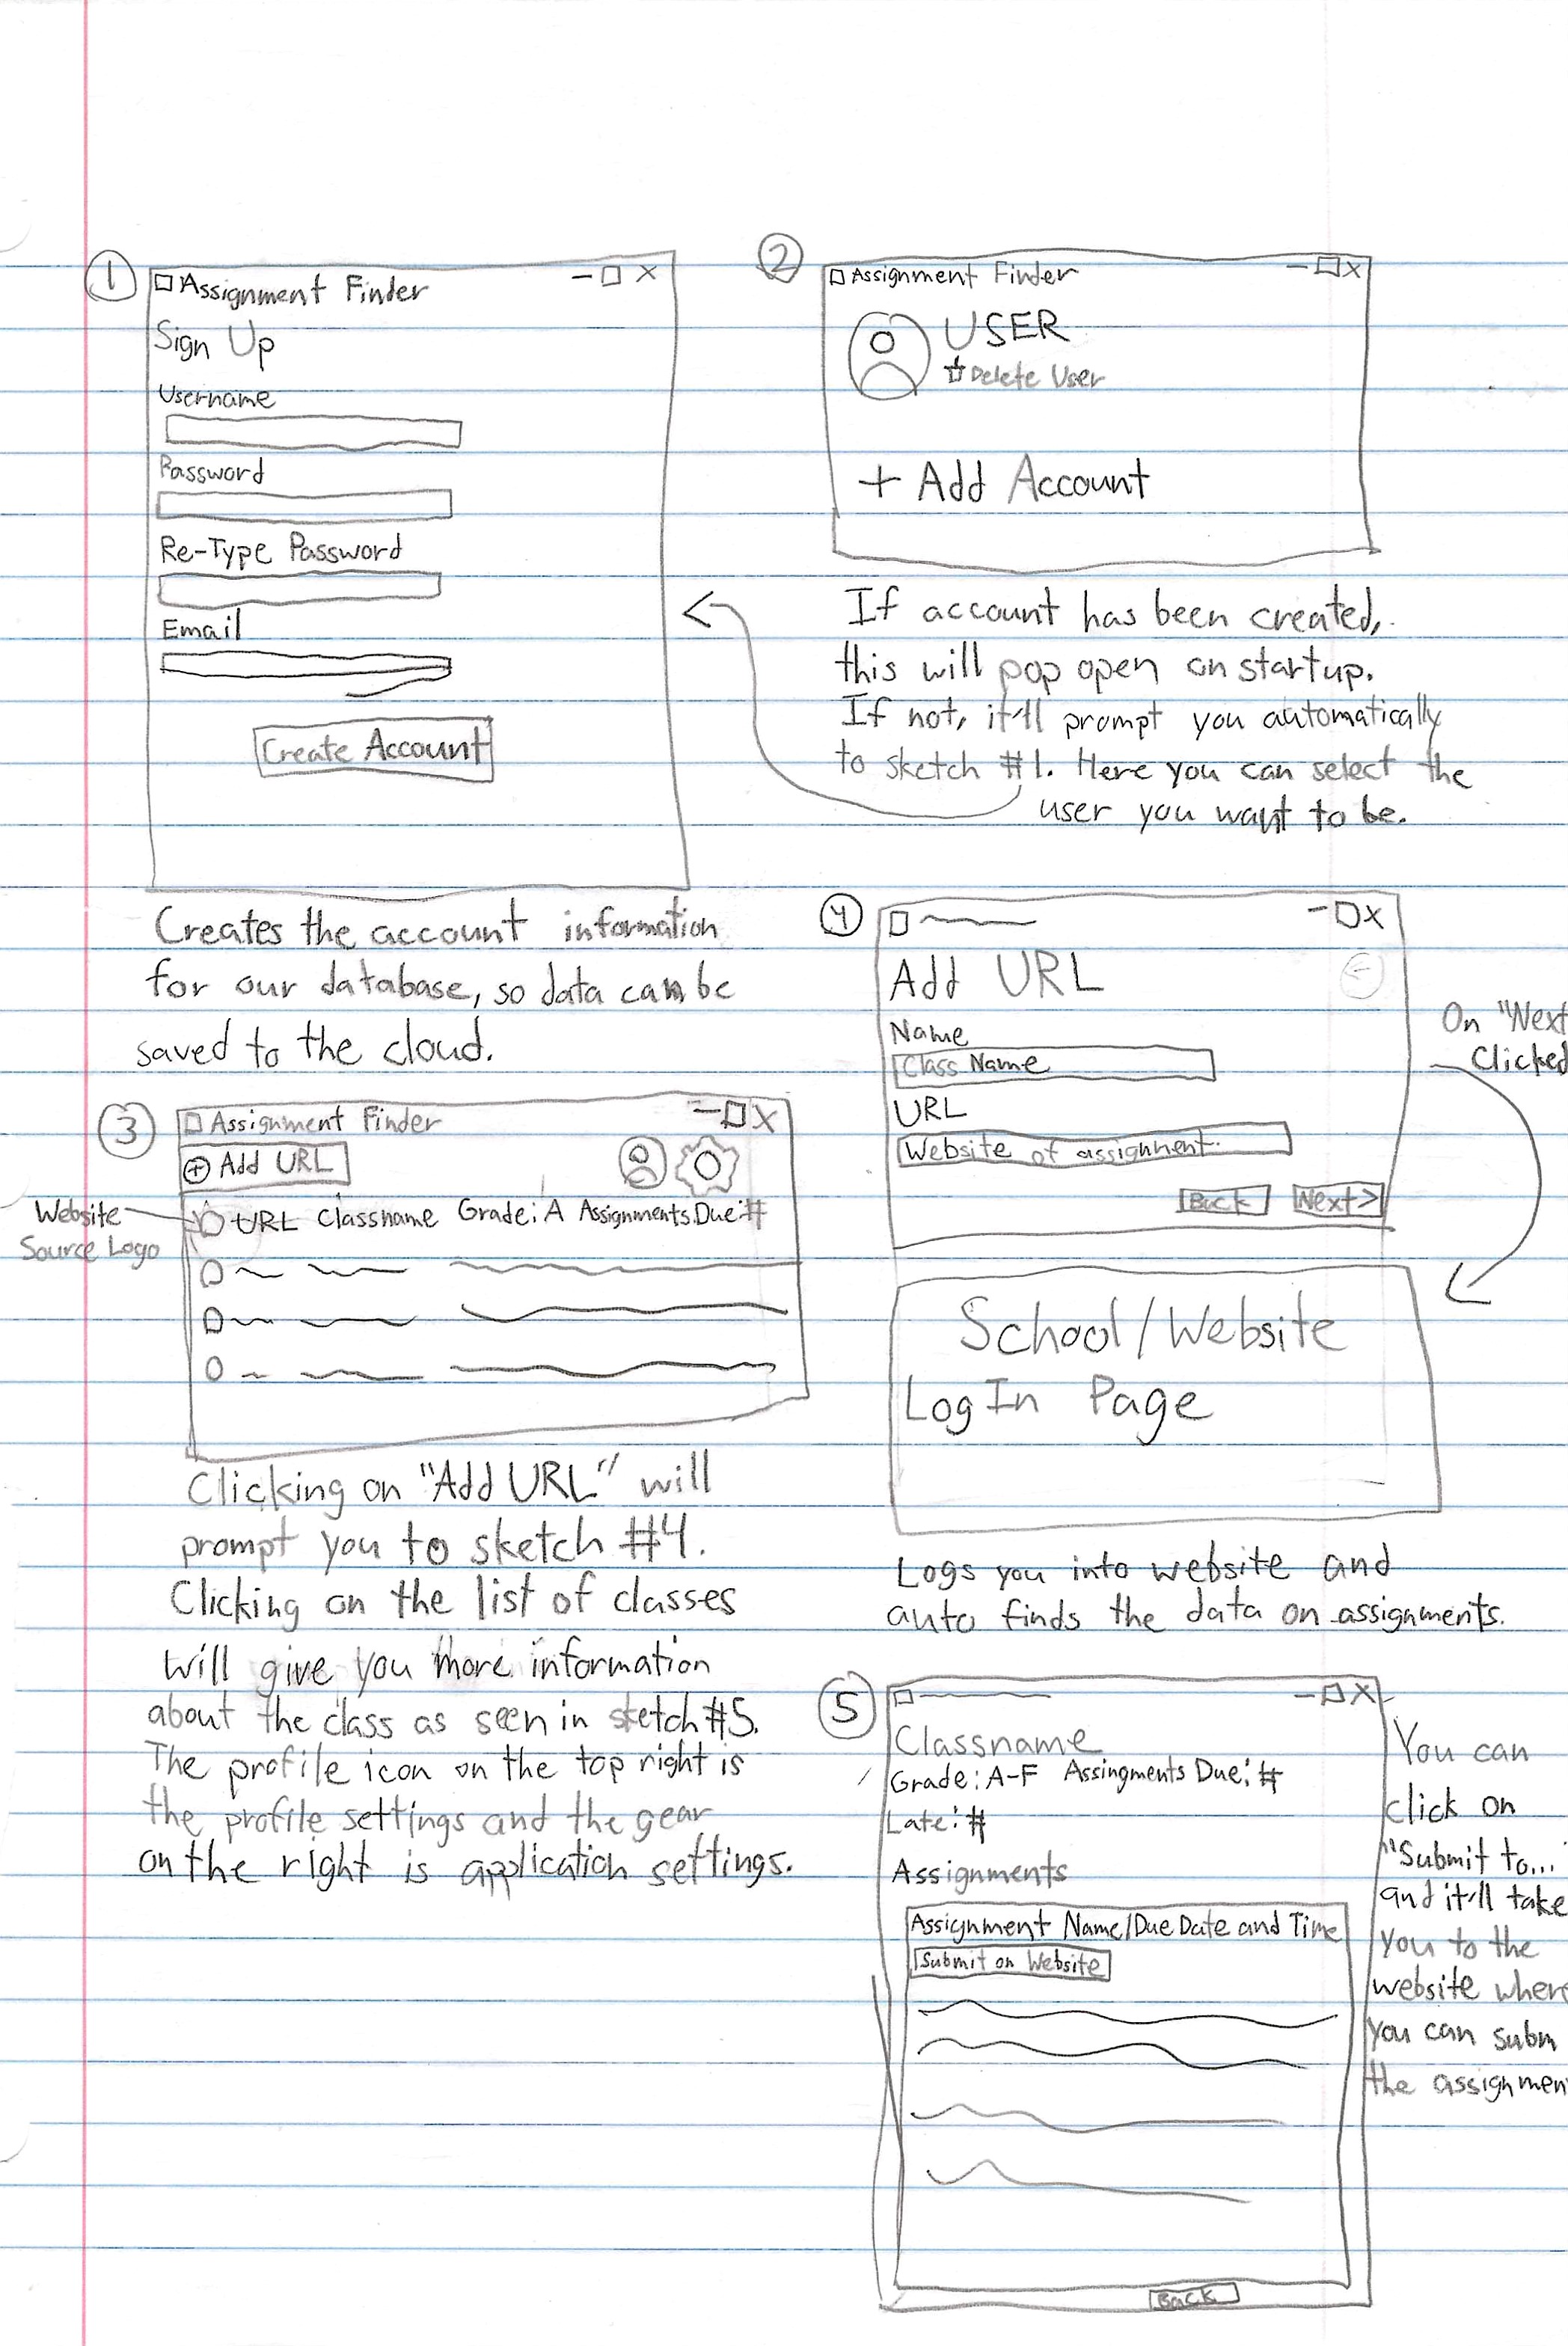 1
Assignment Finder
Sign Up
Username
Password
Re-Type Password
Email
Create Account
Creates the account information
for our database, so data can be
saved to the cloud.
2
Assignment Finder
USER
Delete User
+ Add Account
If account has been created,
this will pop open on startup.
If not, it'll prompt you automatically
to sketch #1. Here you can select the
user you want to be.
3
Assignment Finder
Add URL
Website
Source Logo
URL Classname Grade: A Assignments Due: #
Clicking on "Add URL" will
prompt you to sketch #4.
Clicking on the list of classes
will give you more information
about the class as seen in sketch #5.
The profile icon on the top right is
the profile settings and the gear
on the right is application settings.
4
Add URL
Name
Class Name
URL
Website of assignment
Back Next >
On "Next
Clicked
School/Website
Log In Page
Logs you into website and
auto finds the data on assignments.
5
Classname
Grade: A-F Assingments Due: #
Late: #
Assignments
Assignment Name/Due Date and Time
Submit on Website
Back
You can
click on
"Submit to..."
and it'll take
you to the
website where
you can subm
the assignmen